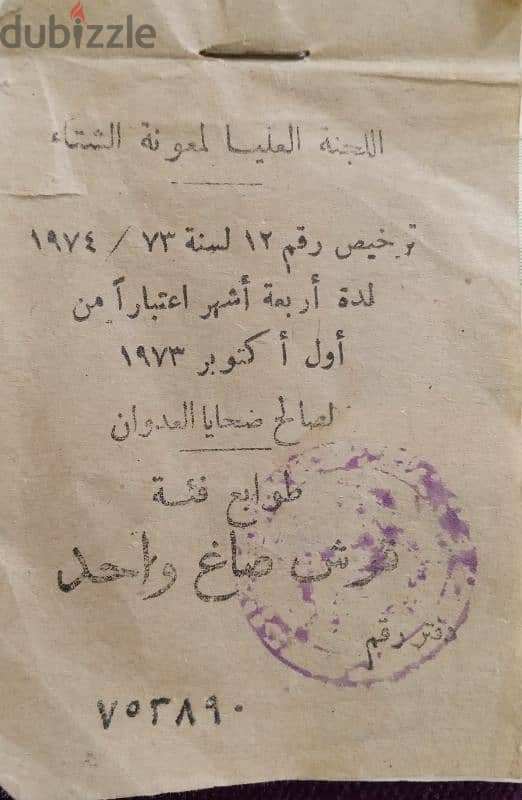 dubizzle
اللجنة العليا لمعونة الشتاء
ترخيص رقم ١٢ لسنة ٧٣ / ١٩٧٤
لمدة أربعة أشهر اعتباراً من
أول أكتوبر ١٩٧٣
لصالح ضحايا العدوان
طوابع فئة
قرش صاغ واحد
دفتر رقم
٧٥٢٨٩٠